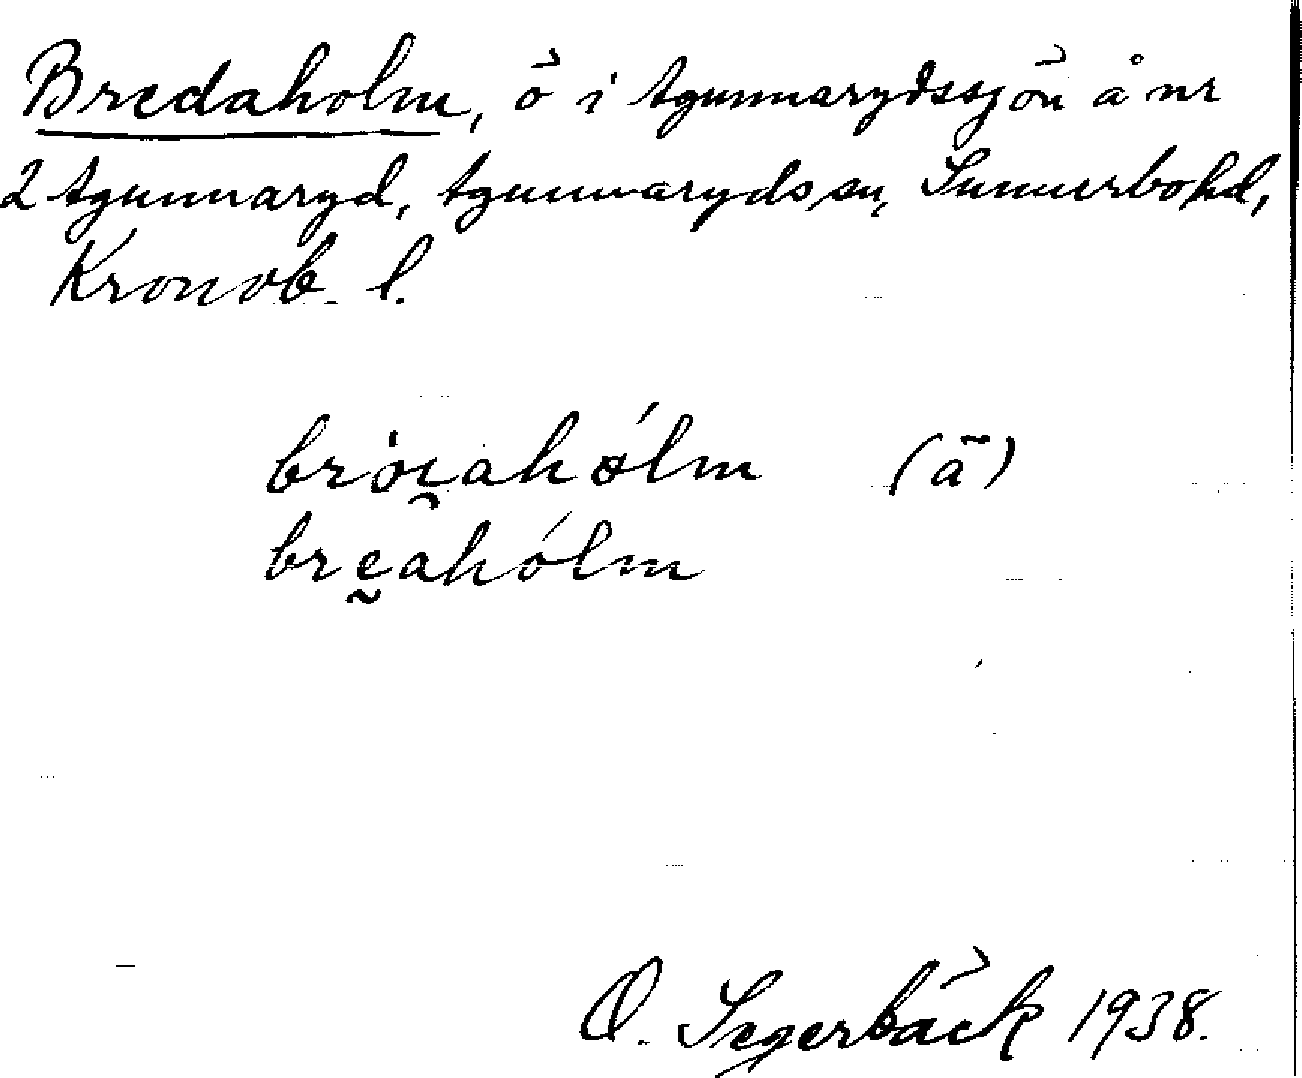 Bredaholm, ö i Agunnarydssjön å nr
2 Agunnaryd, Agunnaryds sn, Sunnerbo hd,
Kronob. l.
bróıahólm (ã)
brḛahólm
O. Segerbäck 1938.